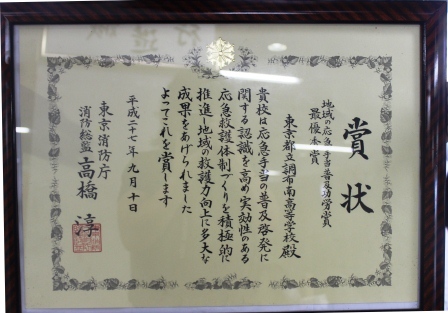 賞状
地域の応急手当普及功労賞
最優秀賞
東京都立調布南高等学校殿
貴校は応急手当の普及啓発に
関する認識を高め実効性のある
応急救護体制づくりを積極的に
推進し地域の救護力向上に多大な
成果をあげられました
よってこれを賞します
平成二十七年九月十日
東京消防庁
消防総監 高橋淳